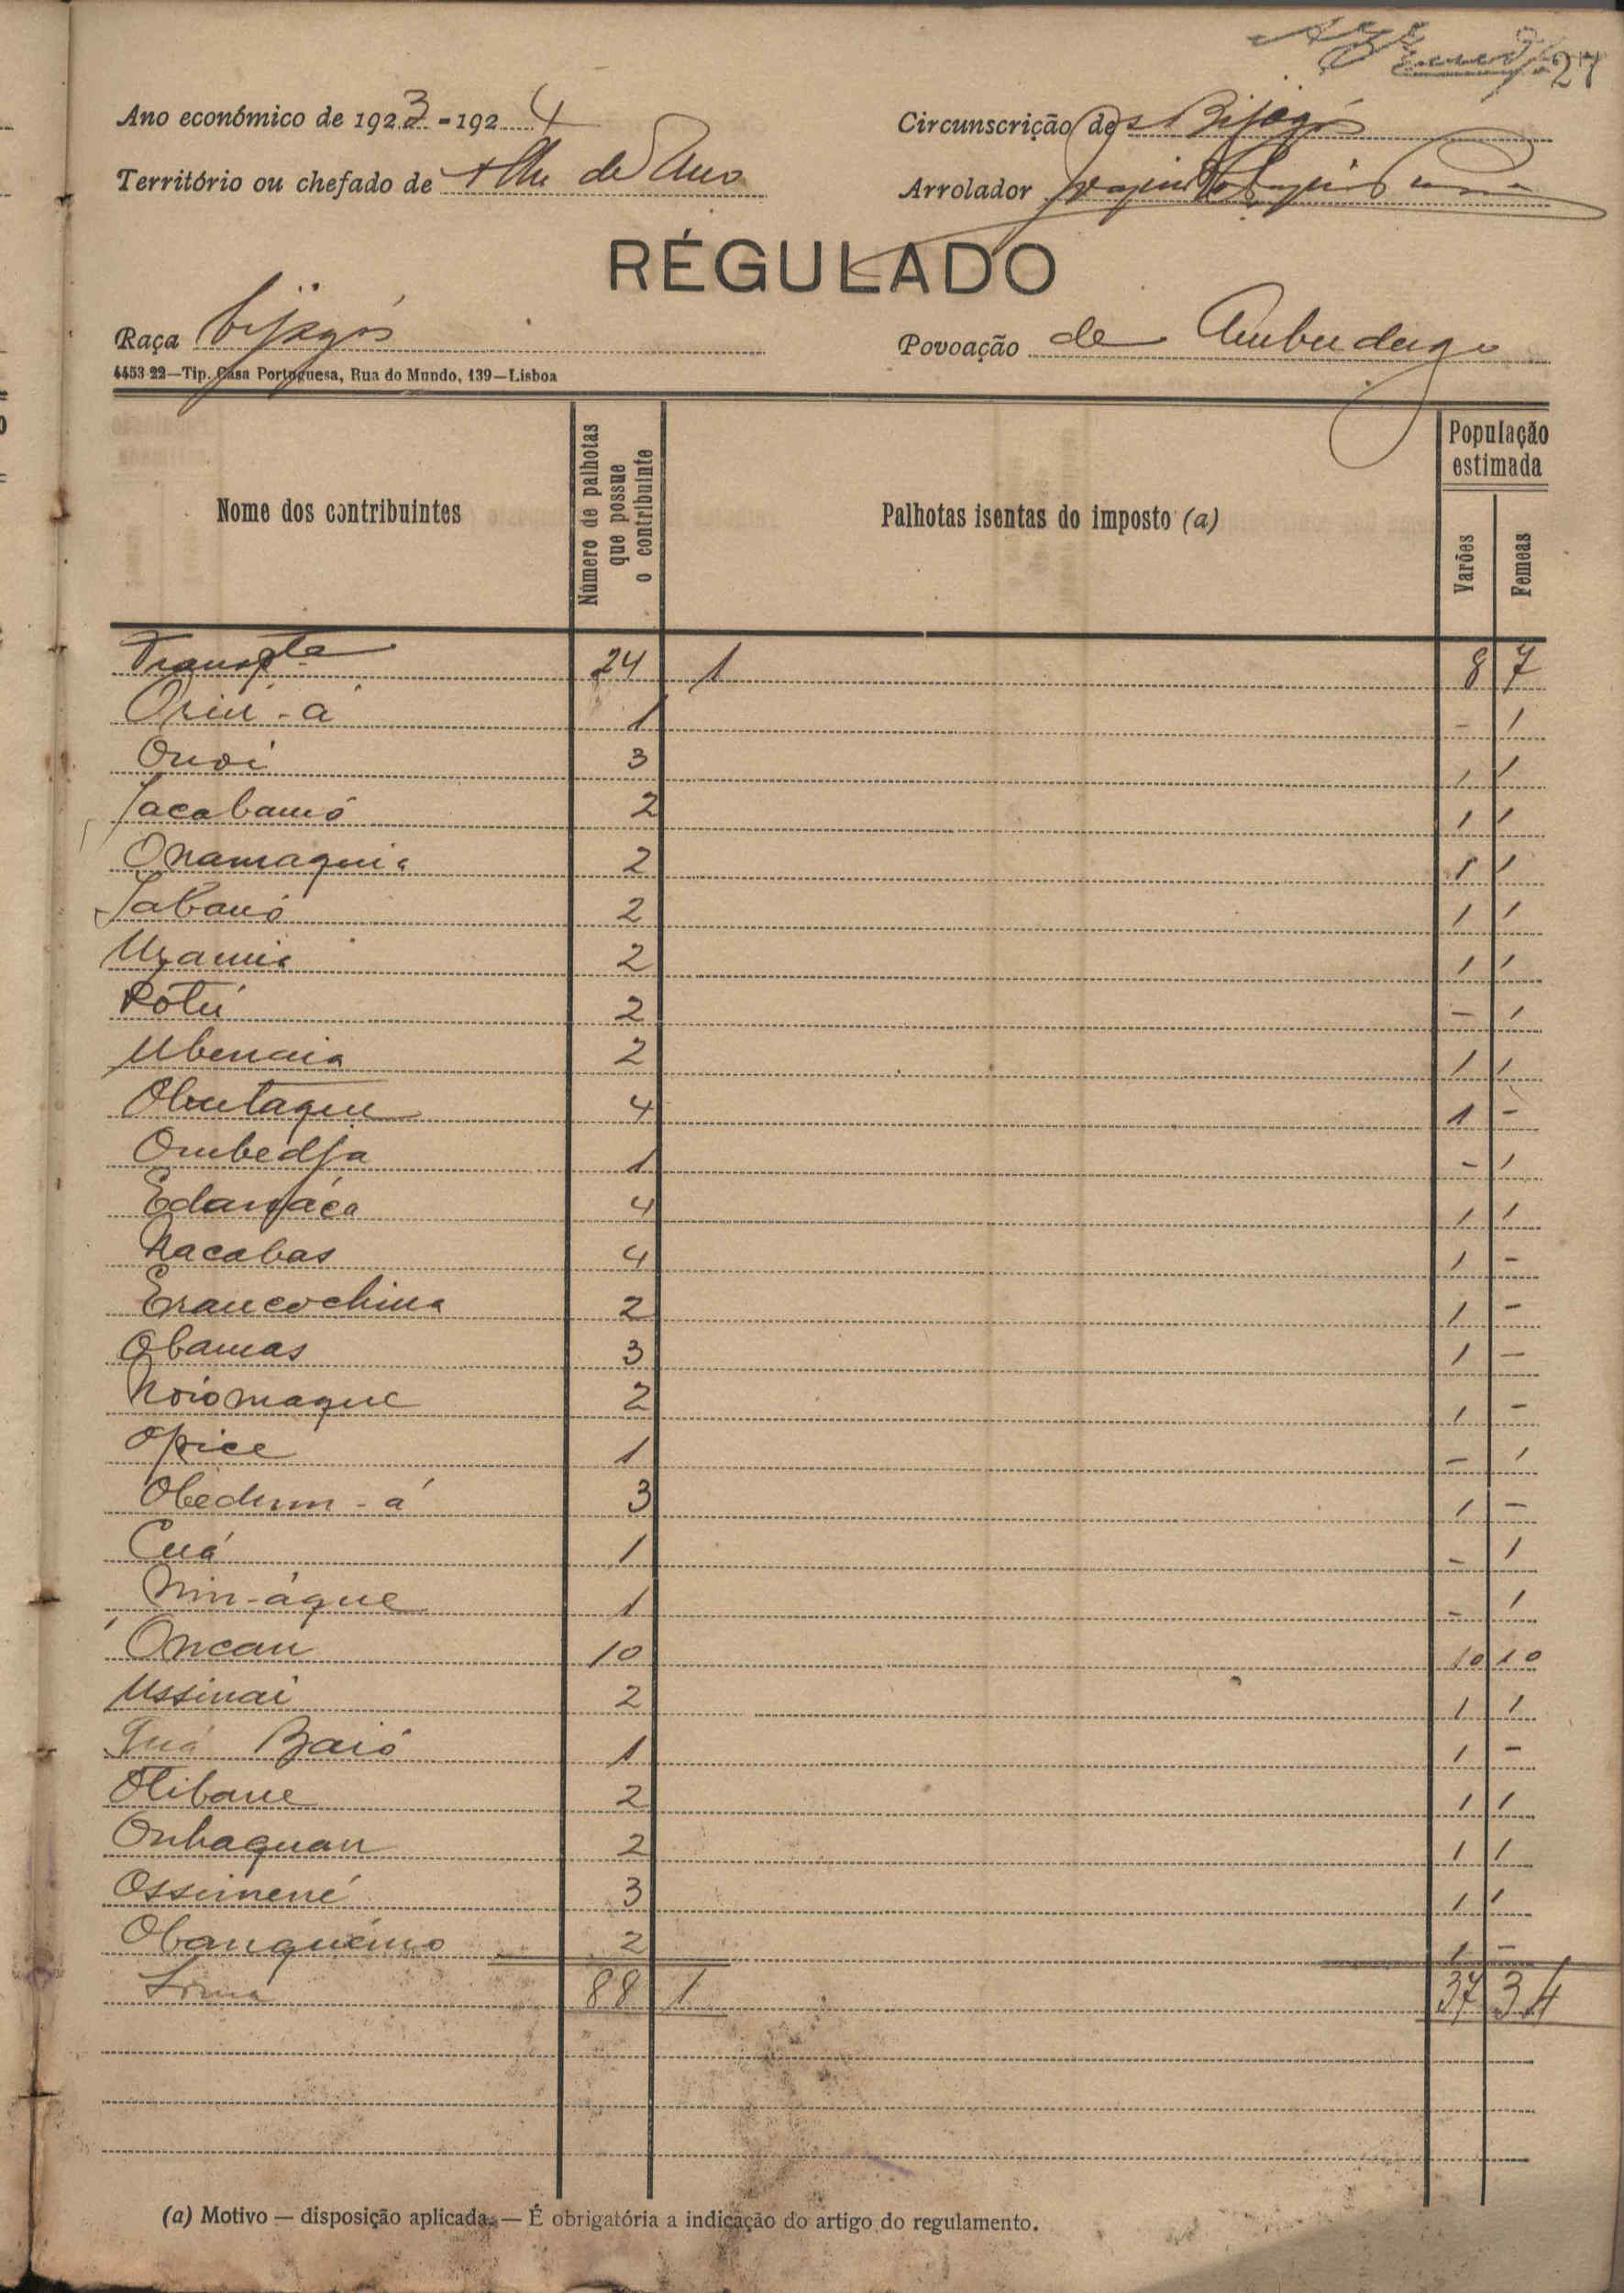 27
Ano económico de 1923-1924 Circunscrição de s Bijagós
Território ou chefado de Ilha de Uno Arrolador
RÉGULADO
Raça bijagós Povoação de Ambudugo
4453 22—Tip. Casa Portuguesa, Rua do Mundo, 139—Lisboa
Nome dos contribuintes Número de palhotas que possue o contribuinte Palhotas isentas do imposto (a) População estimada Varões Femeas
Transpte 24 1 8 7
Oriú-á 1 - 1
Onoi 3 1 1
Jacabamó 2 1 1
Onamaquia 2 1 1
Jabanó 2 1 1
Uzamis 2 1 1
Rotú 2 - 1
Ubenaia 2 1 1
Obutaque 4 1 -
Ombedja 1 - 1
Edanjáca 4 1 1
Nacabas 4 1 -
Erancochina 2 1 -
Obamas 3 1 -
Noiomaque 2 1 -
Opice 1 - 1
Obedum-á 3 1 -
Cuá 1 - 1
Nin-áque 1 - 1
Oncau 10 10 10
Ussinai 2 1 1
Baió 1 1 -
Otibane 2 1 1
Onbaquan 2 1 1
Ossimené 3 1 1
Obanquémo 2 1 -
Soma 88 1 37 34
(a) Motivo — disposição aplicada. — É obrigatória a indicação do artigo do regulamento.